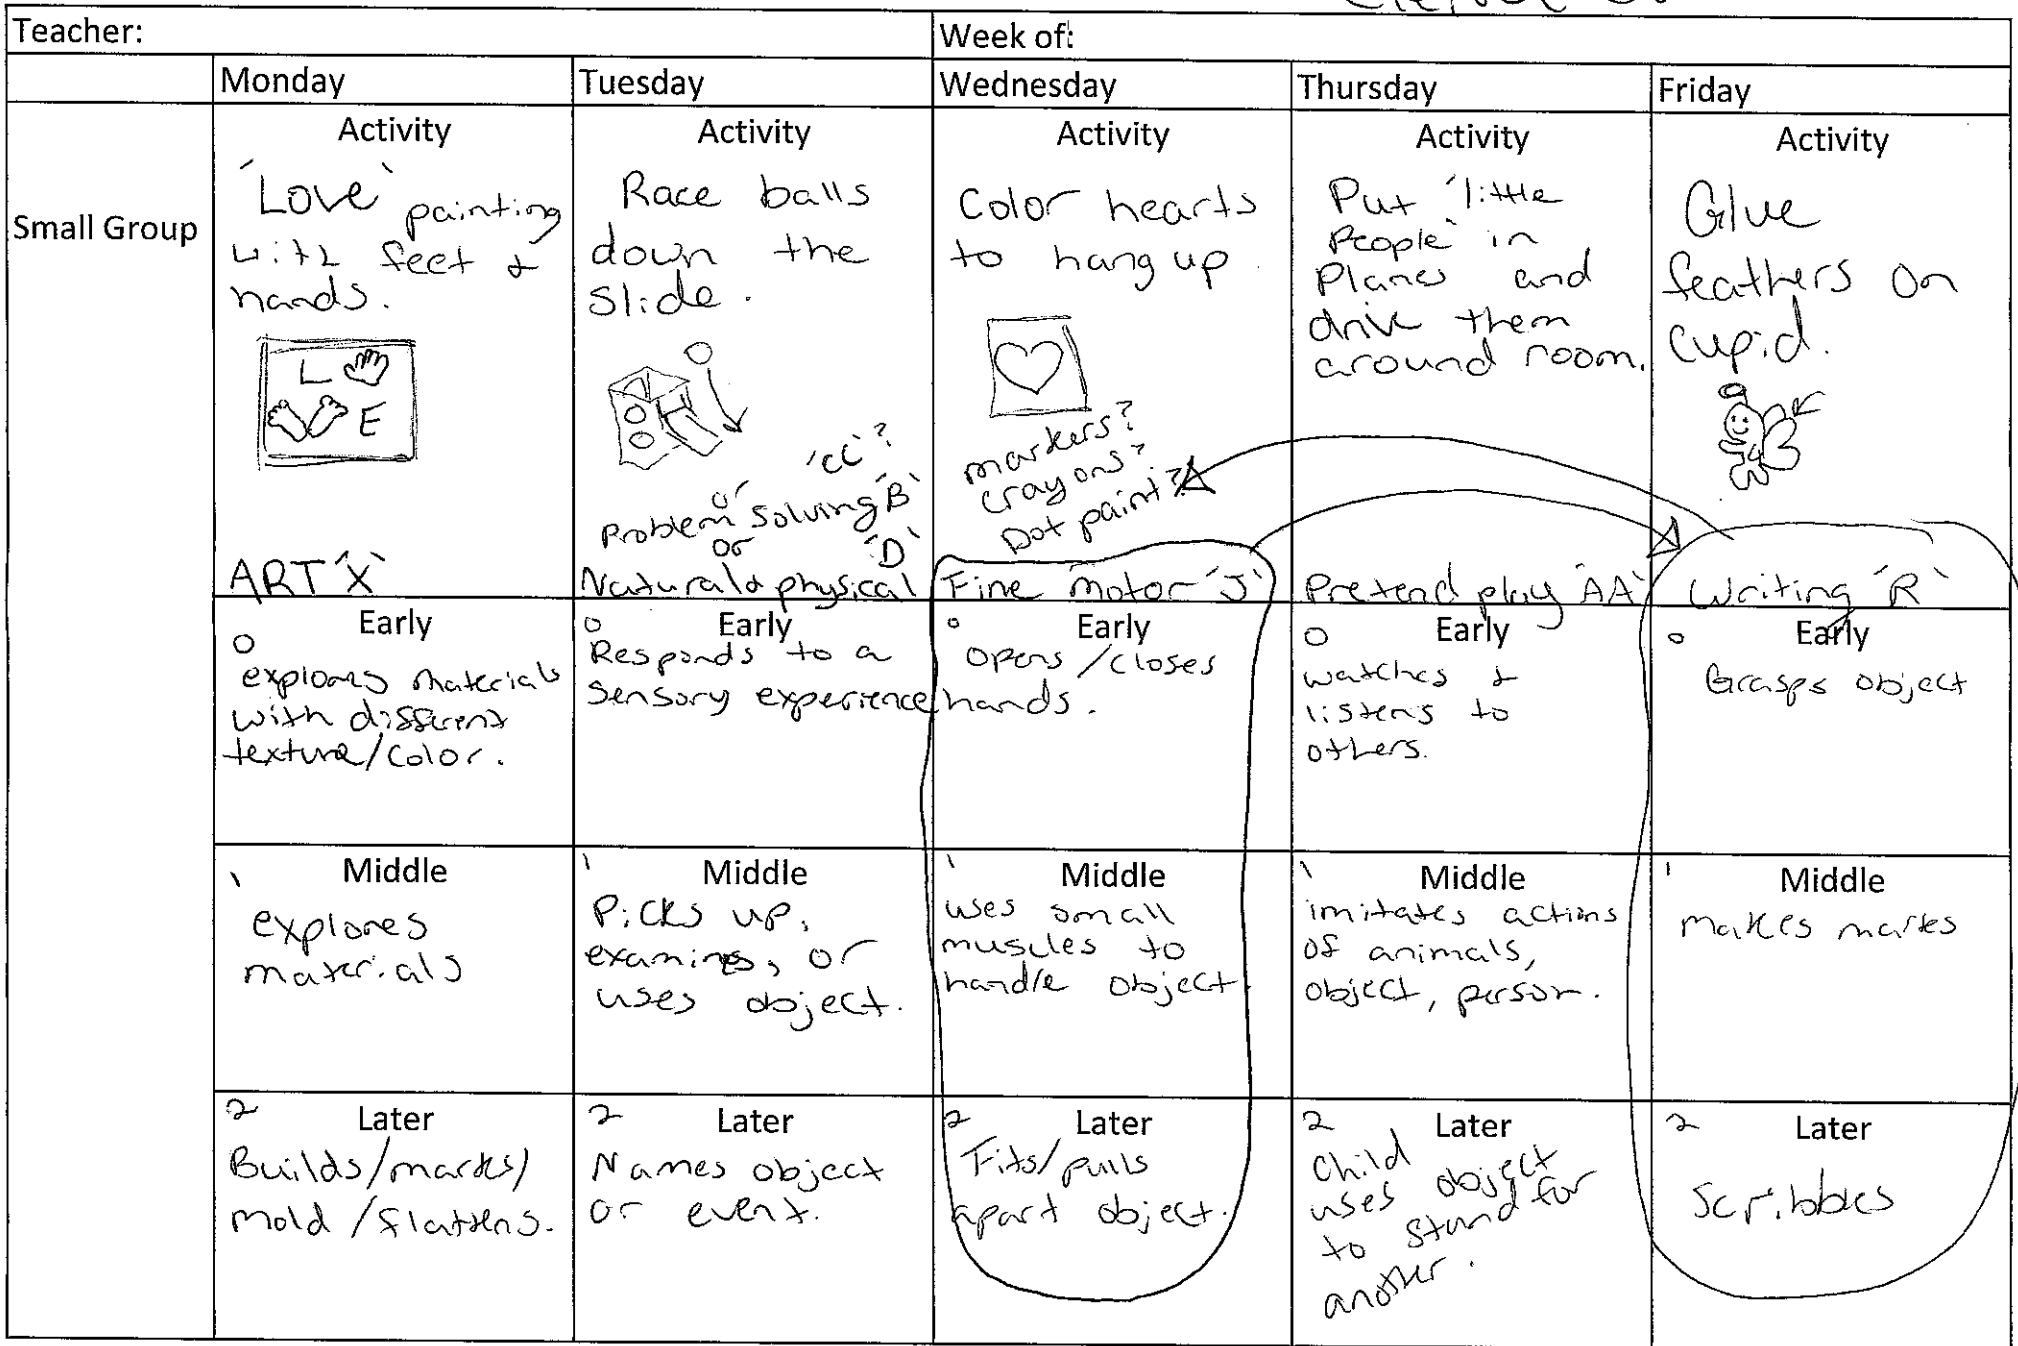 Teacher:
Week of:
Monday
Tuesday
Wednesday
Thursday
Friday
Small Group
Activity
'Love' painting
with feet &
hands.
L
E
ART 'X'
Activity
Race balls
down the
slide.
'CC'?
or
Problem solving 'B'
or 'D'
Natural & physical
Activity
Color hearts
to hang up.
markers?
crayons?
Dot paint?
Fine motor 'J'
Activity
Put 'little
People' in
Planes and
drive them
around room.
Pretend play 'AA'
Activity
Glue
feathers on
cupid.
Writing 'R'
0 Early
explores materials
with different
texture/color.
0 Early
Responds to a
sensory experience
0 Early
opens/closes
hands.
0 Early
watches &
listens to
others.
0 Early
Grasps object
1 Middle
explores
materials
1 Middle
Picks up,
examines, or
uses object.
1 Middle
uses small
muscles to
handle object.
1 Middle
imitates actions
of animals,
object, person.
1 Middle
makes marks
2 Later
Builds/marks/
mold/flattens.
2 Later
Names object
or event.
2 Later
Fits/pulls
apart object.
2 Later
Child
uses object
to stand for
another.
2 Later
Scribbles